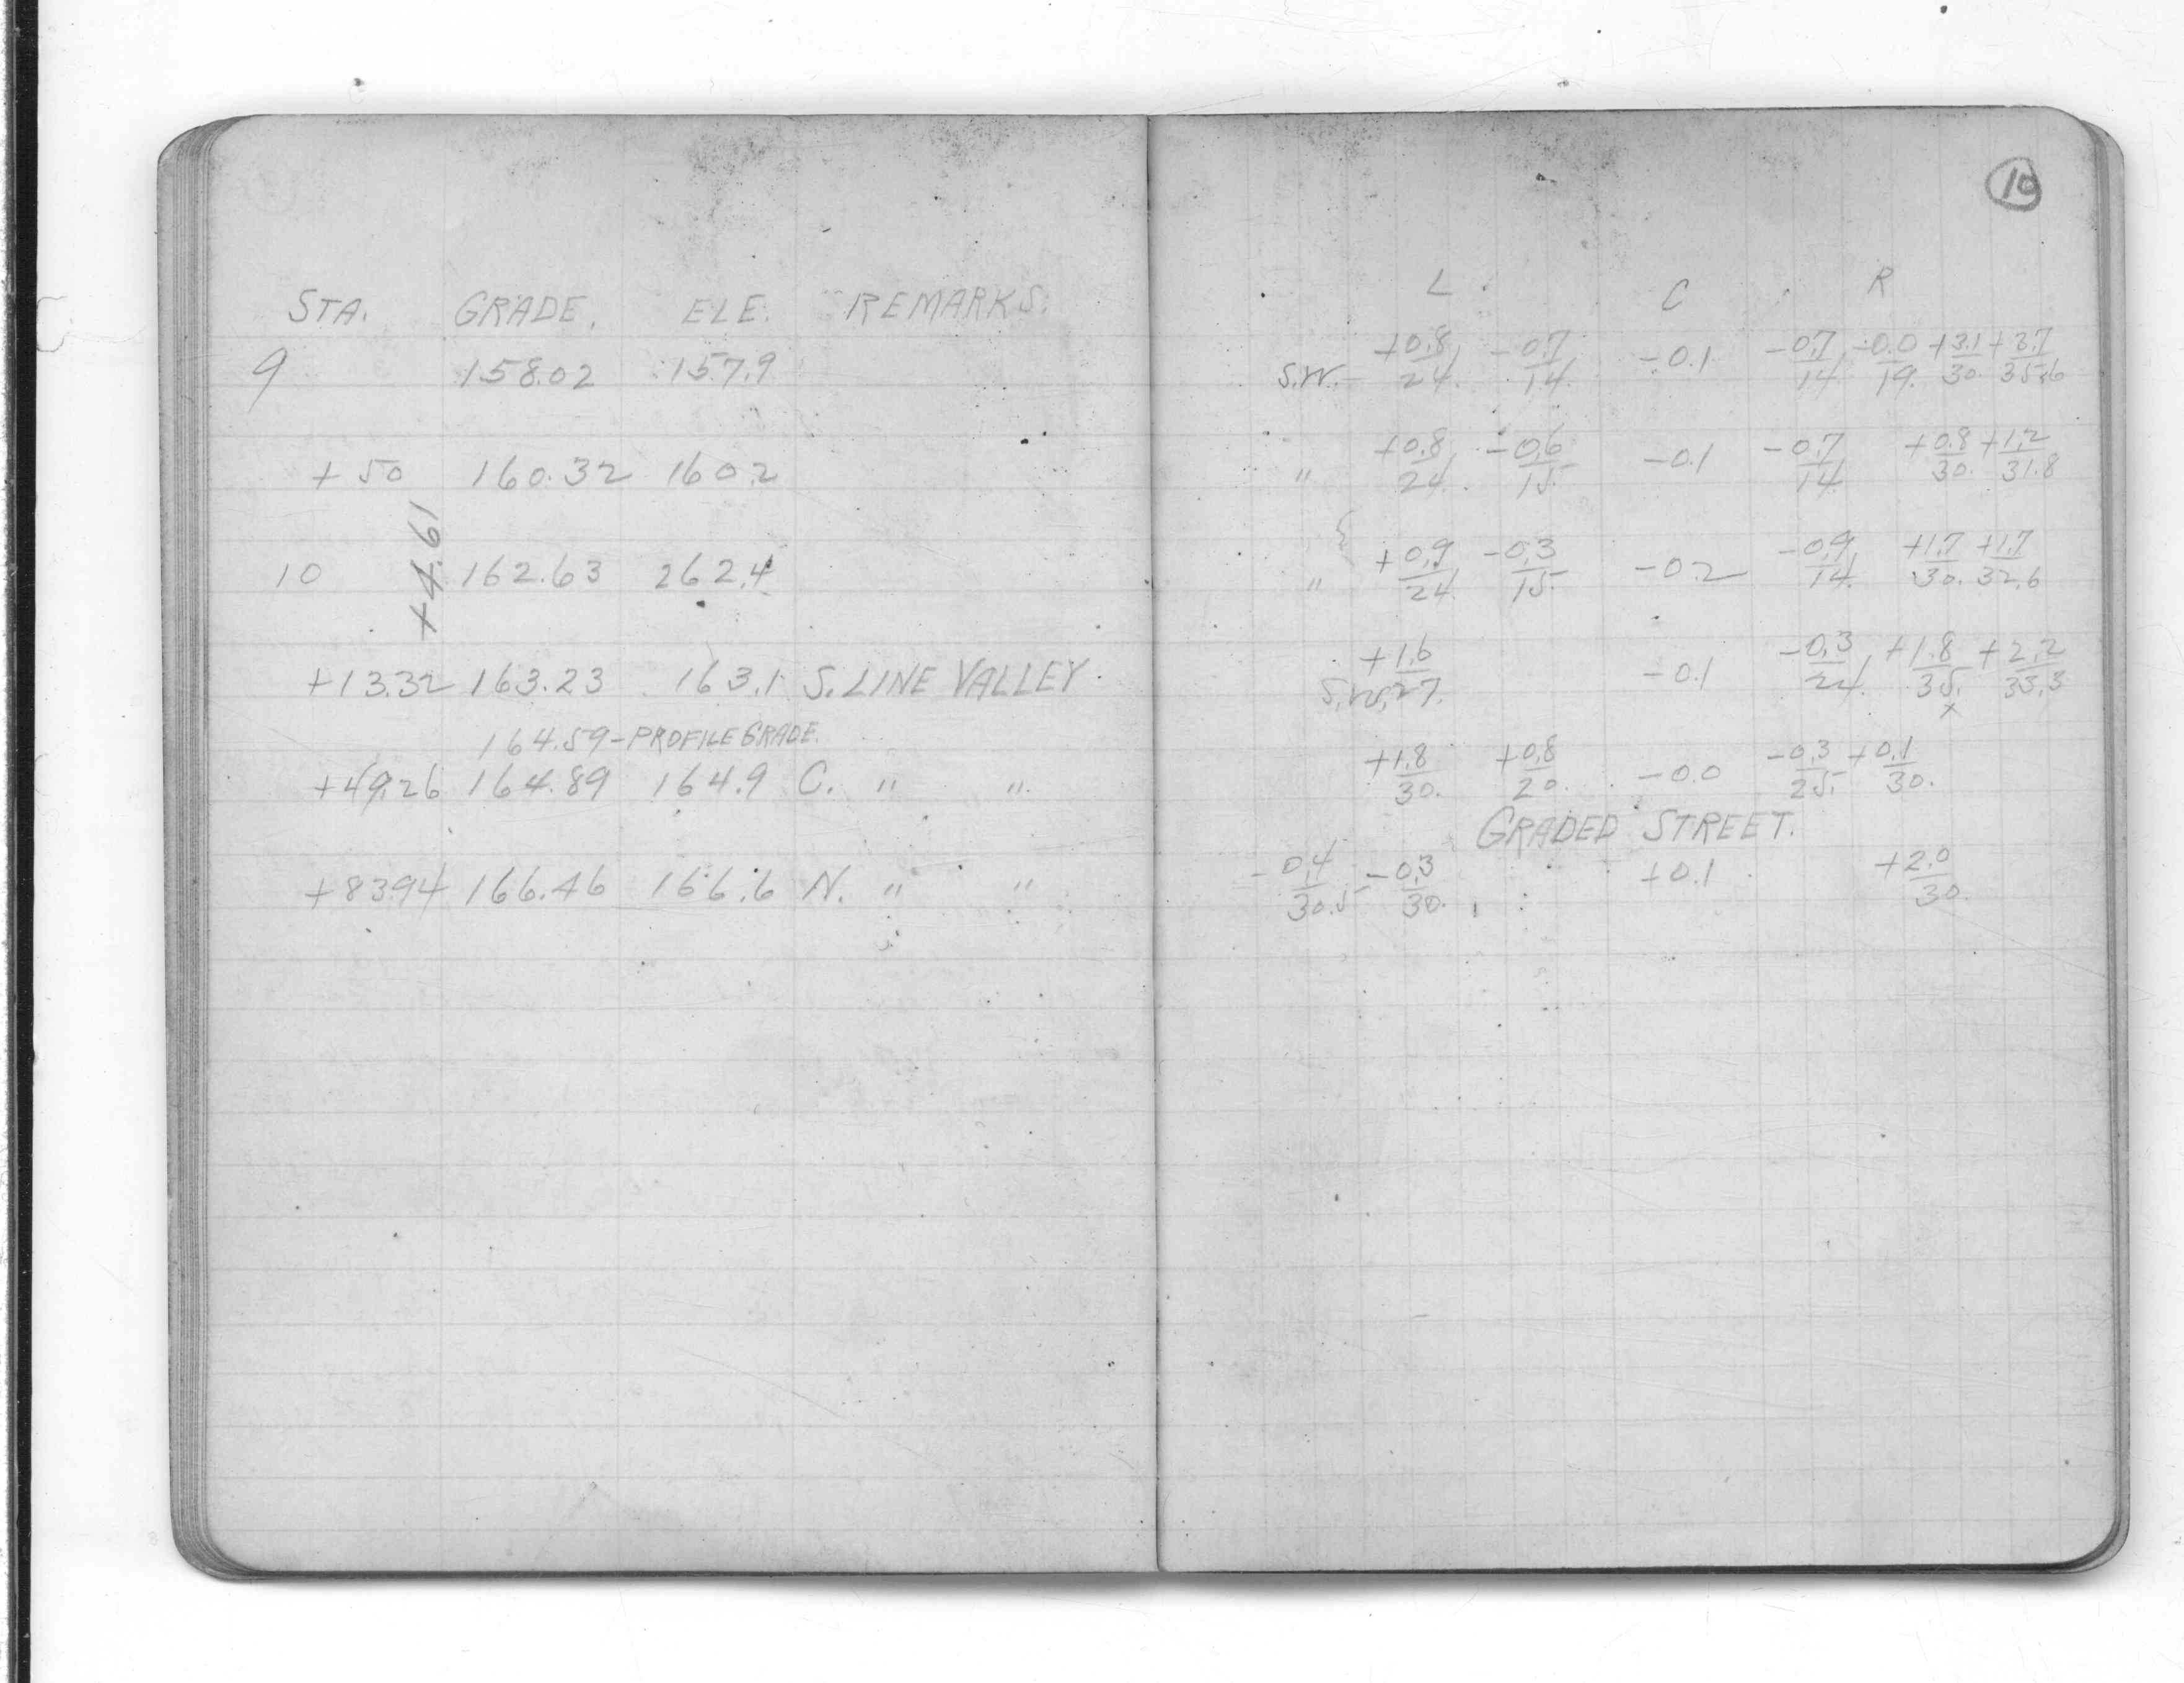 10
STA. GRADE. ELE. REMARKS.
9 158.02 157.9
+50 160.32 160.2
+4.61
10 162.63 262.4
+13.32 163.23 163.1 S. LINE VALLEY.
164.59 - PROFILE GRADE.
+49.26 164.89 164.9 C. " "
+83.94 166.46 166.6 N. " "
L C R
S.W. +0.8/24 -0.7/14 -0.1 -0.7/14 -0.0/19 +3.1/30 +3.7/35.6
" +0.8/24 -0.6/15 -0.1 -0.7/14 +0.8/30 +1.2/31.8
" +0.9/24 -0.3/15 -0.2 -0.9/14 +1.7/30 +1.7/32.6
S.W. +1.6/27 -0.1 -0.3/24 +1.8/35 +2.2/33.3
x
+1.8/30 +0.8/20 -0.0 -0.3/25 +0.1/30
GRADED STREET.
-0.4/30.5 -0.3/30 +0.1 +2.0/30